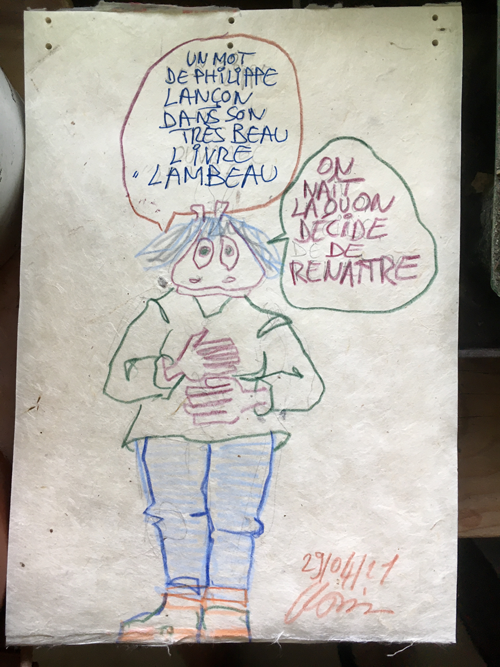 UN MOT
DE PHILIPPE
LANÇON
DANS SON
TRES BEAU
LIVRE
"LAMBEAU
ON
NAÎT
LA OU ON
DECIDE
DE DE
RENAITRE
29/04/21